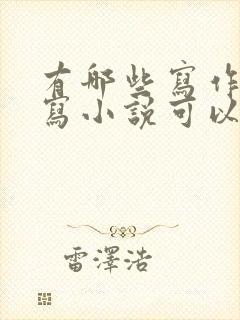 有哪些寫作
寫小說可以
雷澤浩